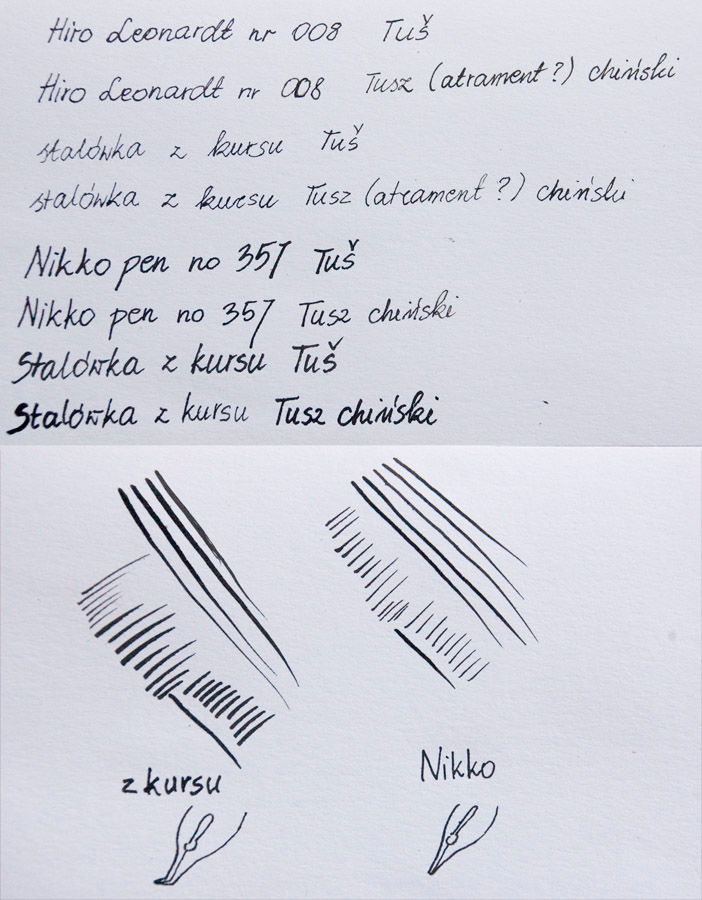 Hiro Leonardt nr 008 Tuš
Hiro Leonardt nr 008 Tusz (atrament?) chiński
stalówka z kursu Tuš
stalówka z kursu Tusz (atrament?) chiński
Nikko pen no 357 Tuš
Nikko pen no 357 Tusz chiński
Stalówka z kursu Tuš
Stalówka z kursu Tusz chiński
z kursu
Nikko